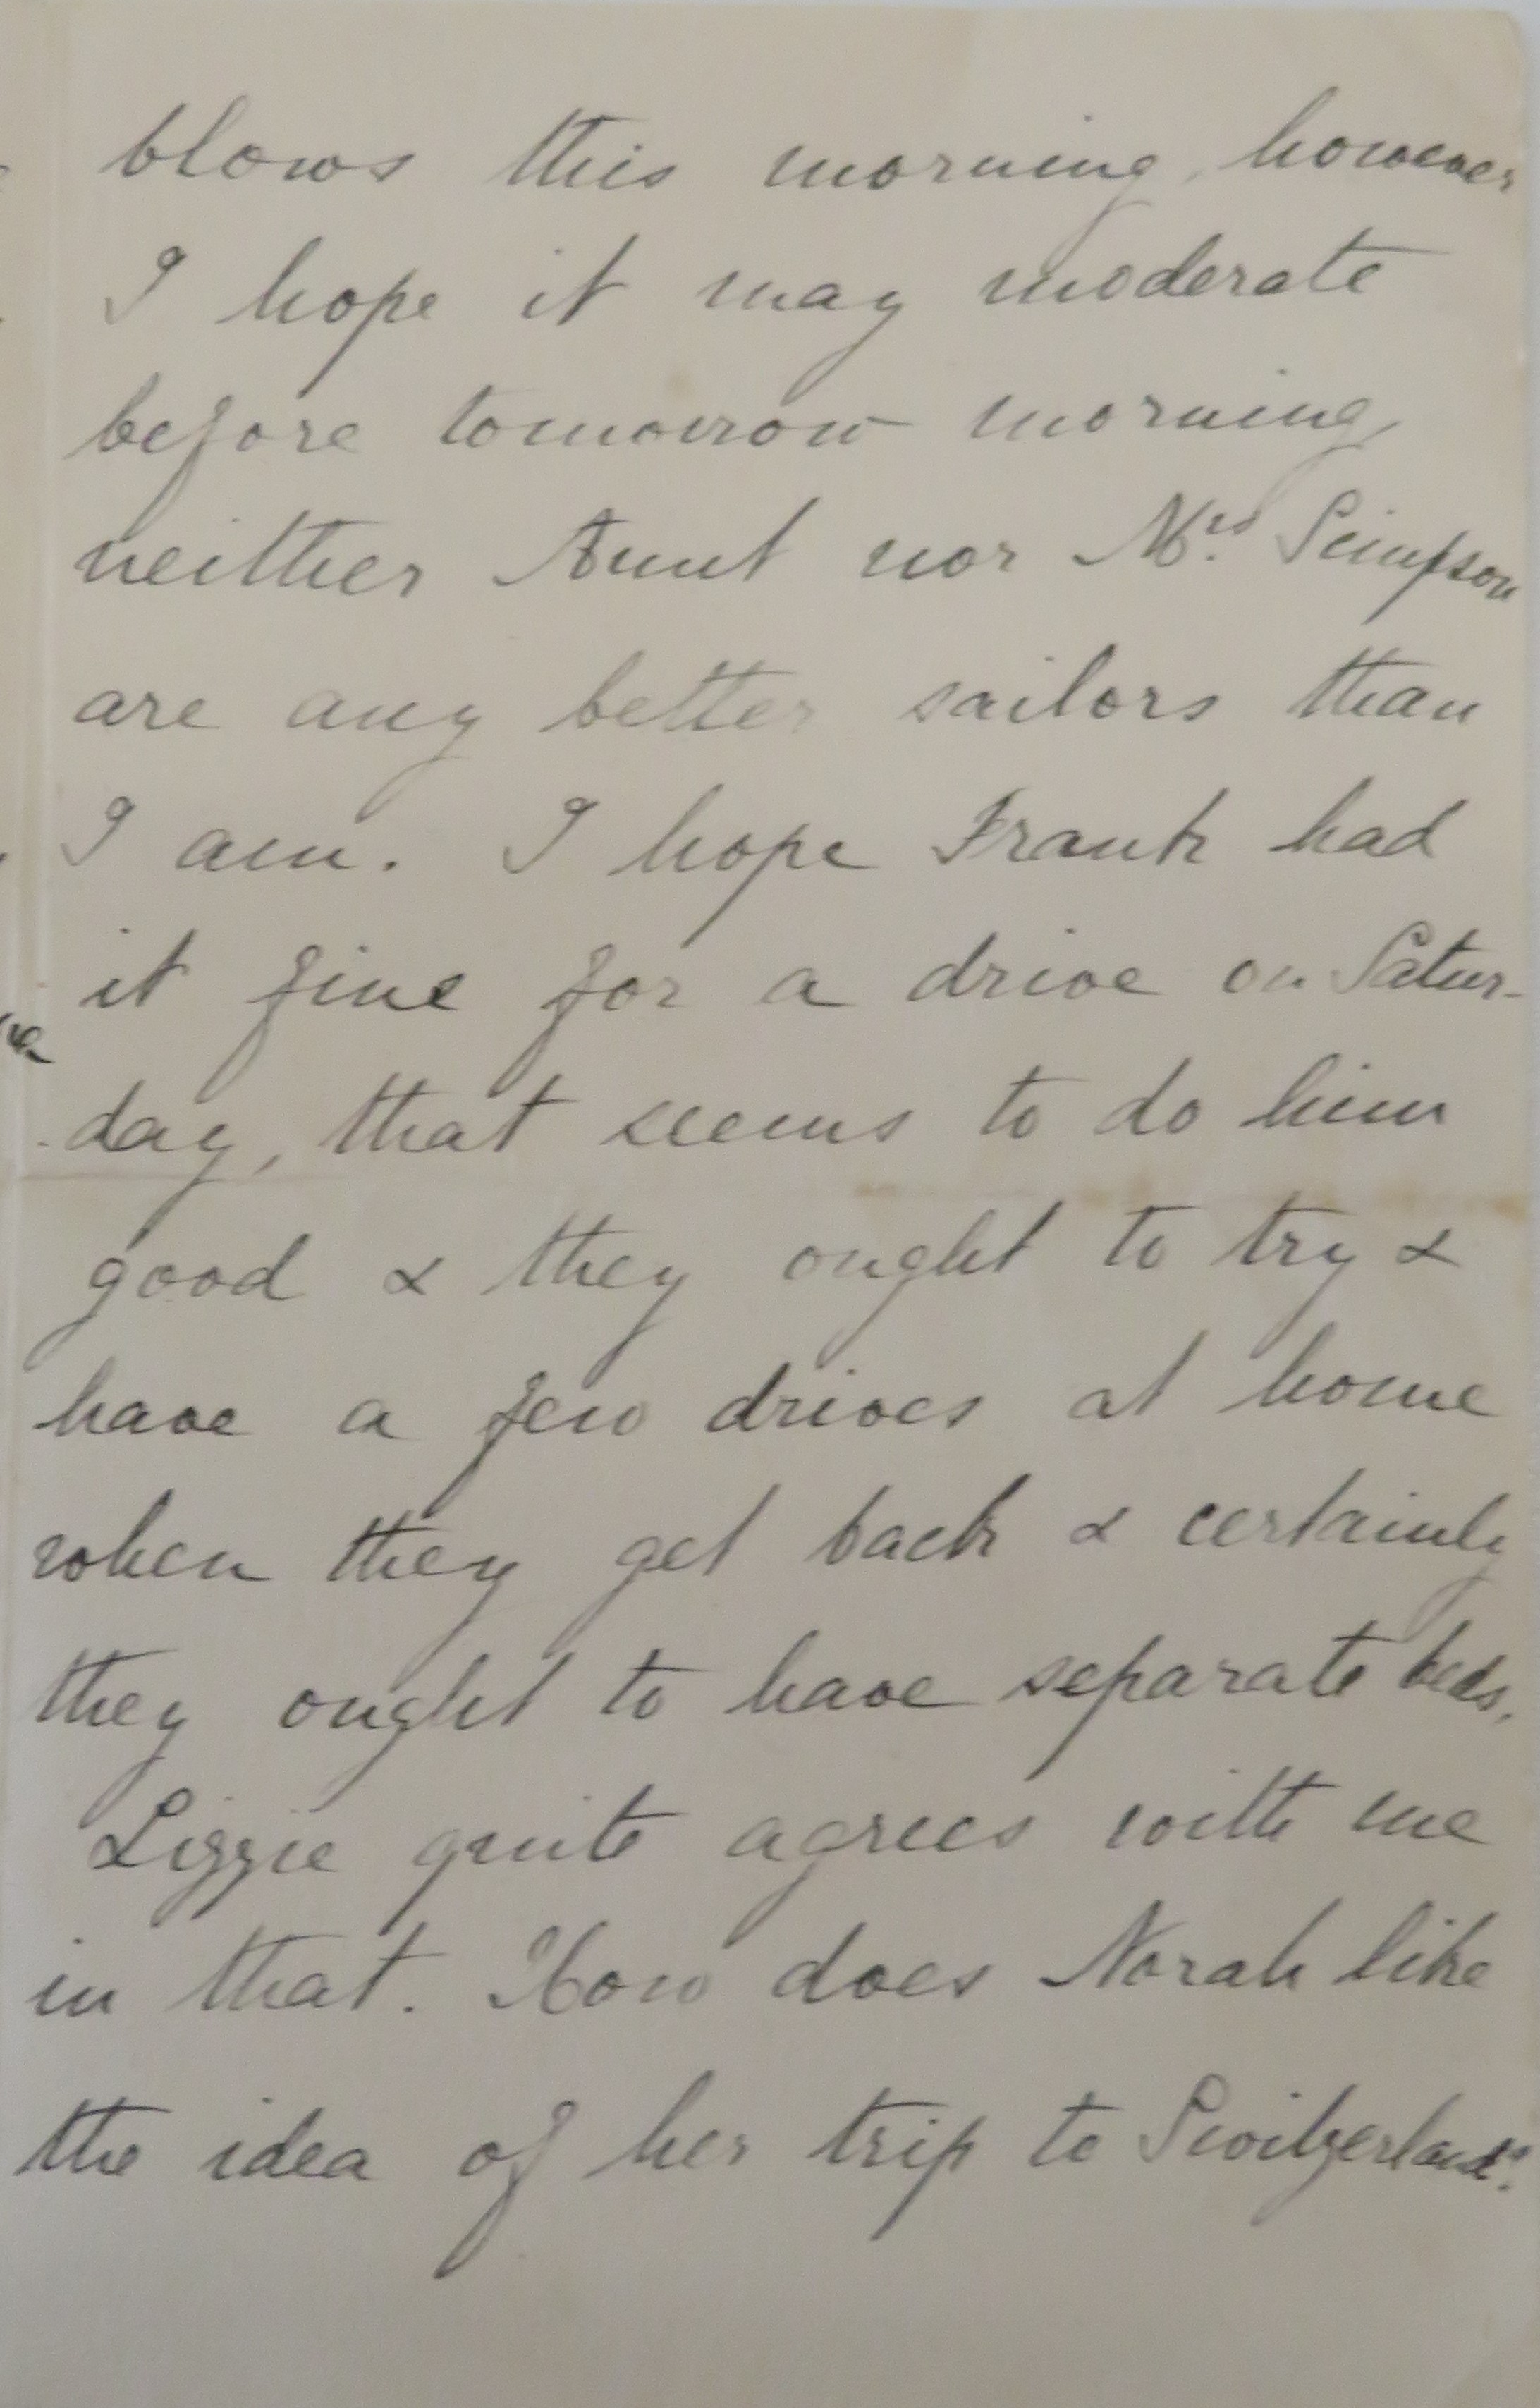 blows this morning, however
I hope it may moderate
before tomorrow morning,
neither Aunt nor Mrs. Simpson
are any better sailors than
I am. I hope Frank had
it fine for a drive on Satur-
day, that seems to do him
good & they ought to try &
have a few drives at home
when they get back & certainly
they ought to have separate beds,
Lizzie quite agrees with me
in that. How does Norah like
the idea of her trip to Switzerland?